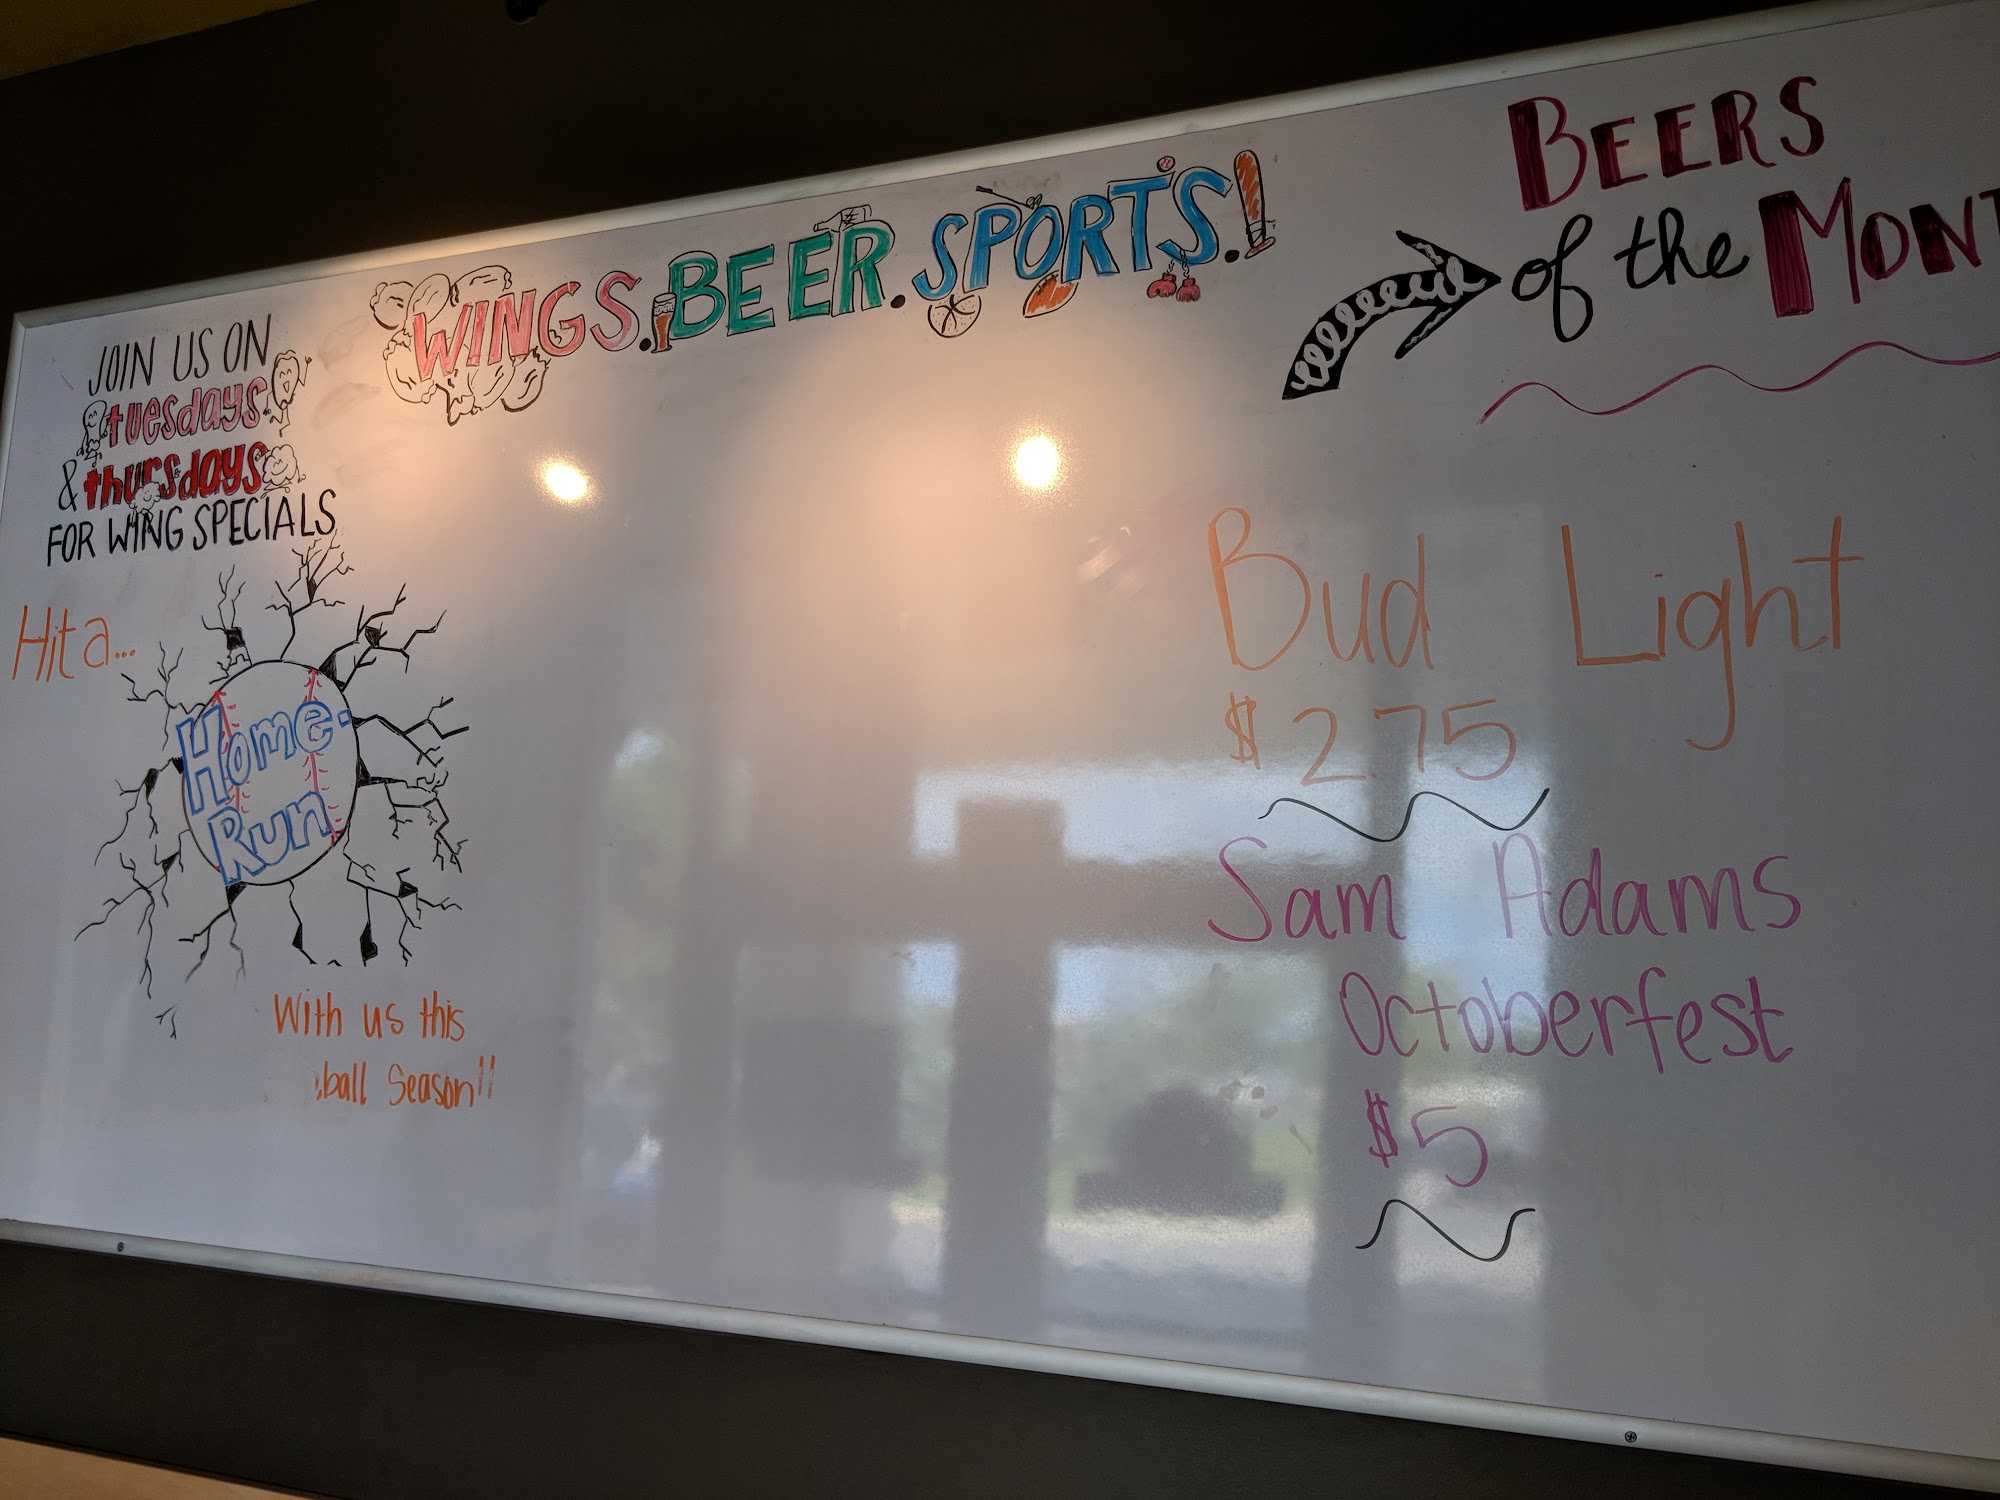 JOIN US ON
tuesdays
& thursdays
FOR WING SPECIALS
Hit a...
Home-
Run
With us this
ball Season!!
WINGS. BEER. SPORTS.!
BEERS
of the MONT
Bud Light
$2.75
Sam Adams
Octoberfest
$5